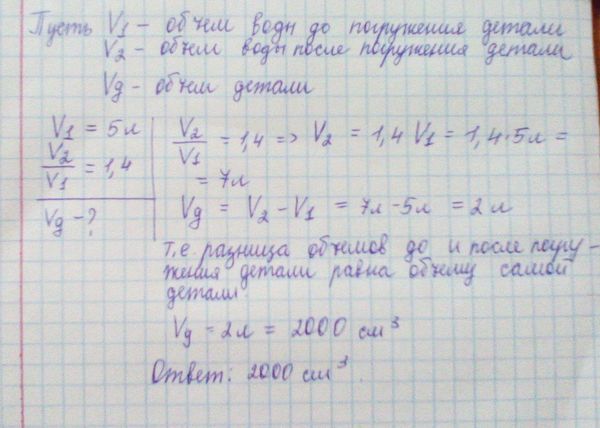 Пусть V1 – объем воды до погружения детали
V2 – объем воды после погружения детали
Vд – объем детали
V1 = 5л
V2/V1 = 1,4
Vд – ?
V2/V1 = 1,4 => V2 = 1,4 V1 = 1,4·5л =
= 7л
Vд = V2 – V1 = 7л – 5л = 2л
т.е. разница объемов до и после погру–
жения детали равна объему самой
детали
Vд = 2л = 2000 см³
Ответ: 2000 см³.